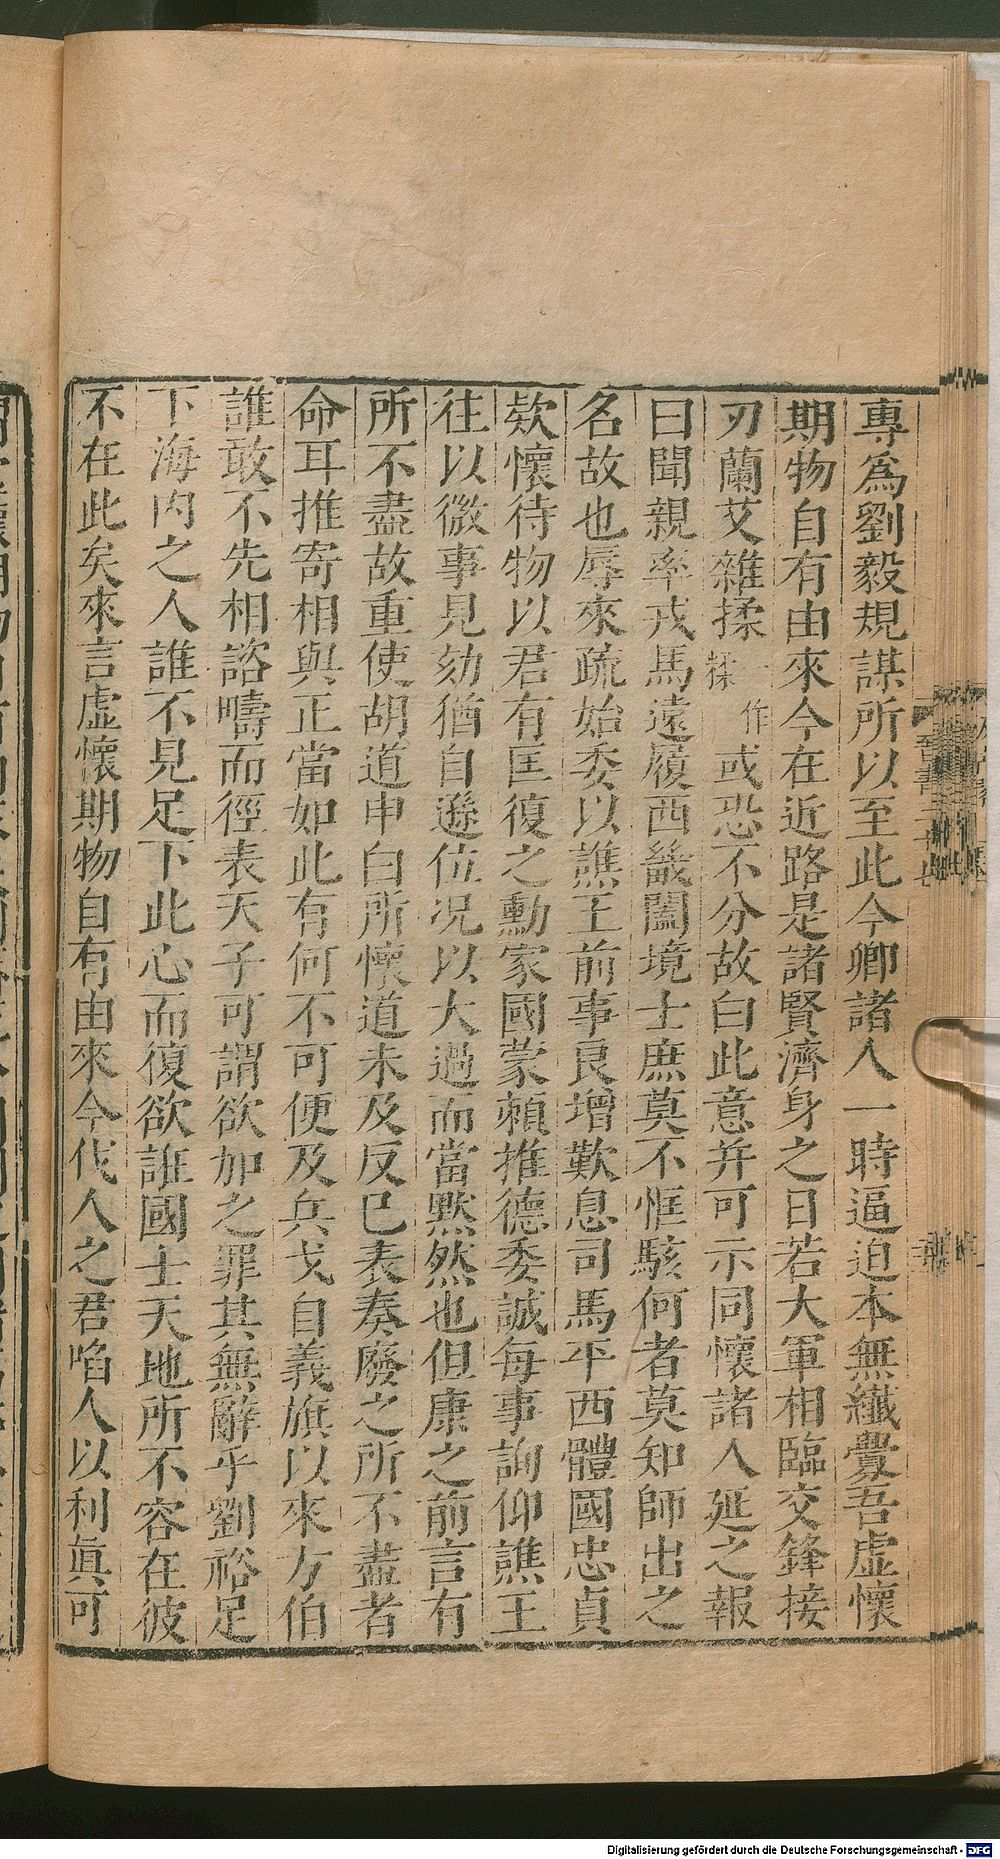 專爲劉毅規謀所以至此今卿諸人一時逼迫本無纎釁吾虛懷
期物自有由來今在近路是諸賢濟身之日若大軍相臨交鋒接
刃蘭艾雜揉一作糅或恐不分故白此意并可示同懷諸人延之報
曰聞親率戎馬遠履西畿闔境士庶莫不恇駭何者莫知師出之
名故也辱來疏始委以譙王前事良增歎息司馬平西體國忠貞
欵懷待物以君有匡復之勳家國蒙頼推德委誠每事詢仰譙王
往以微事見劾猶自遜位况以大過而當黙然也但康之前言有
所不盡故重使胡道申白所懷道未及反已表奏廢之所不盡者
命耳推寄相與正當如此有何不可便及兵戈自義旗以來方伯
誰敢不先相諮疇而徑表天子可謂欲加之罪其無辭乎劉裕足
下海内之人誰不見足下此心而復欲誑國士天地所不容在彼
不在此矣來言虛懷期物自有由來今伐人之君啗人以利眞可
Digitalisierung gefördert durch die Deutsche Forschungsgemeinschaft - DFG